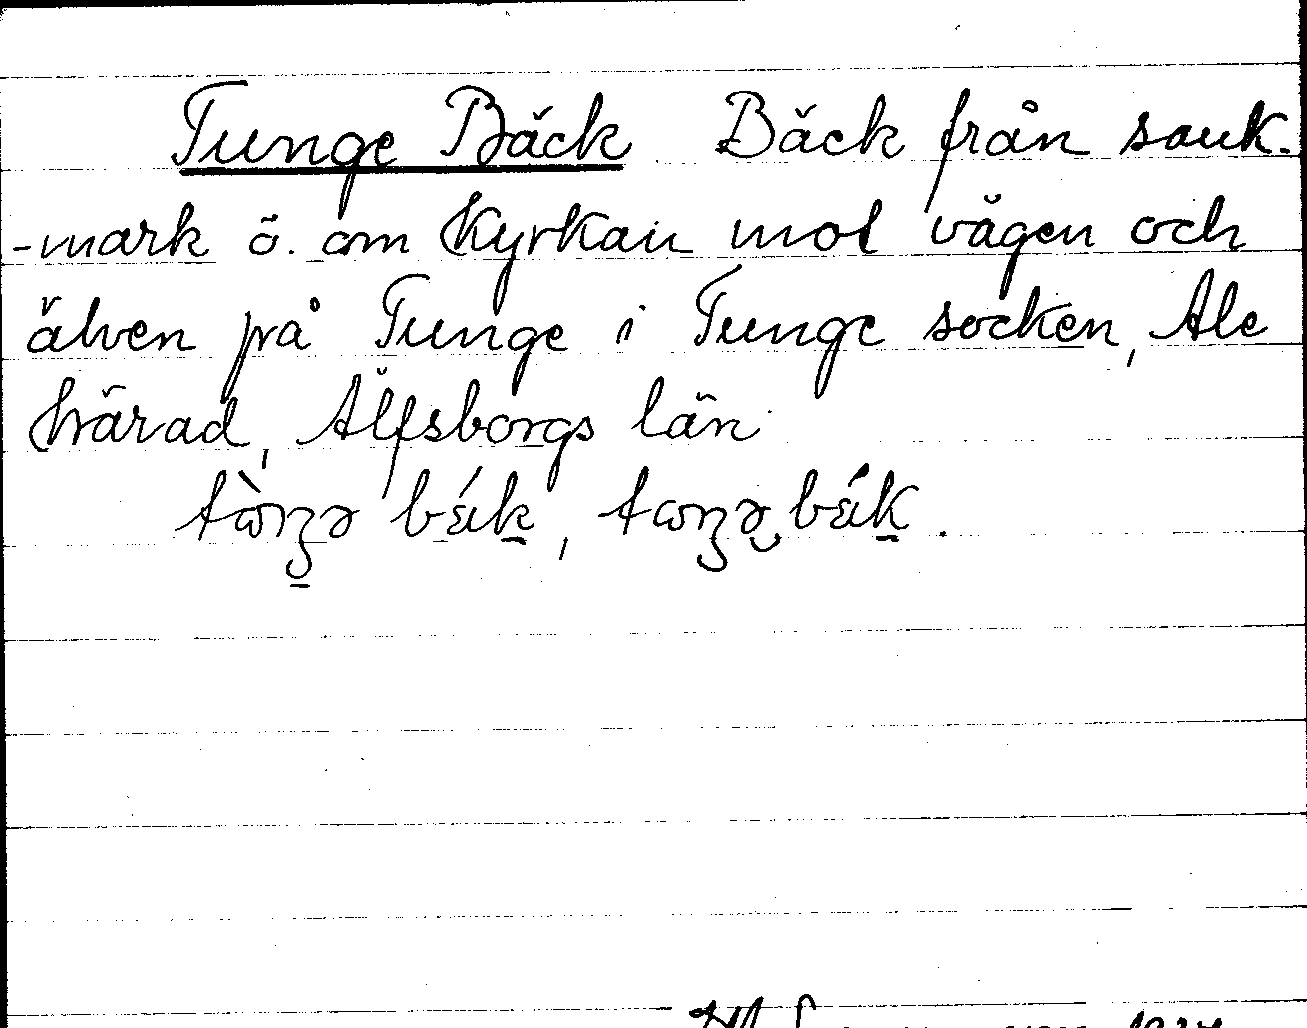 Tunge Bäck Bäck från sank-
-mark ö. om Kyrkan mot vägen och
älven på Tunge i Tunge socken, Ale
härad, Älfsborgs län